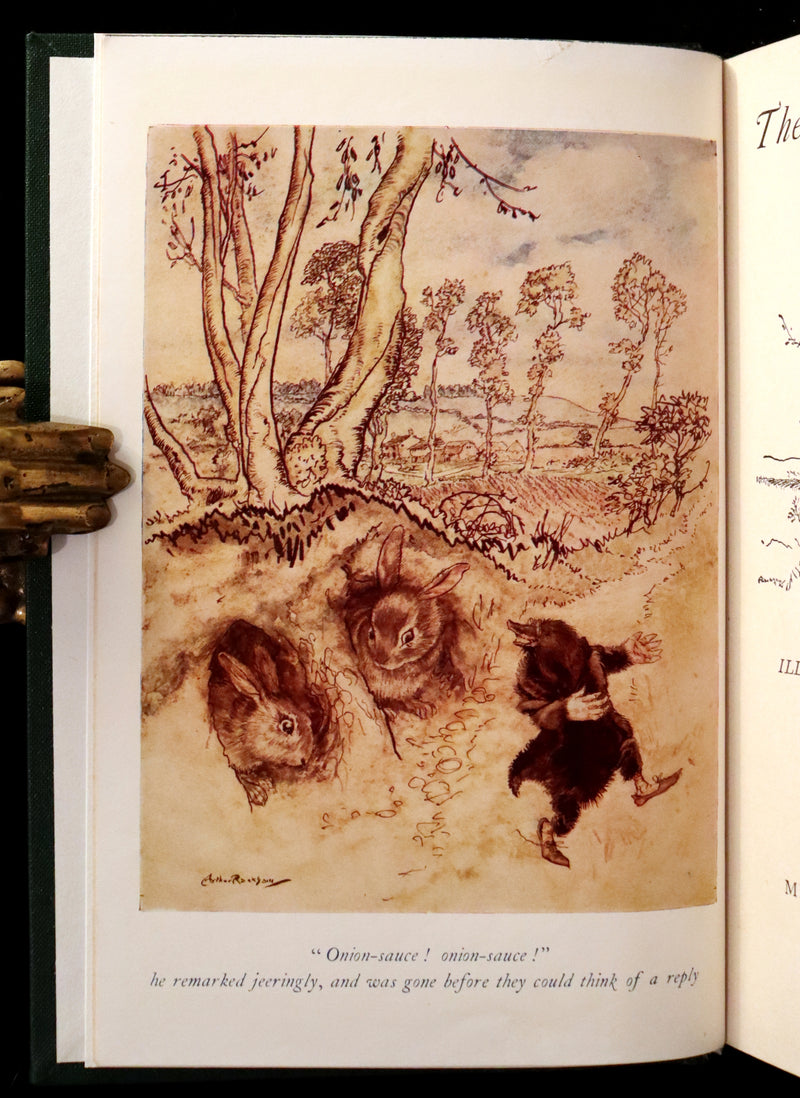 Arthur Rackham
"Onion-sauce ! onion-sauce !"
he remarked jeeringly, and was gone before they could think of a reply
The
ILL
M